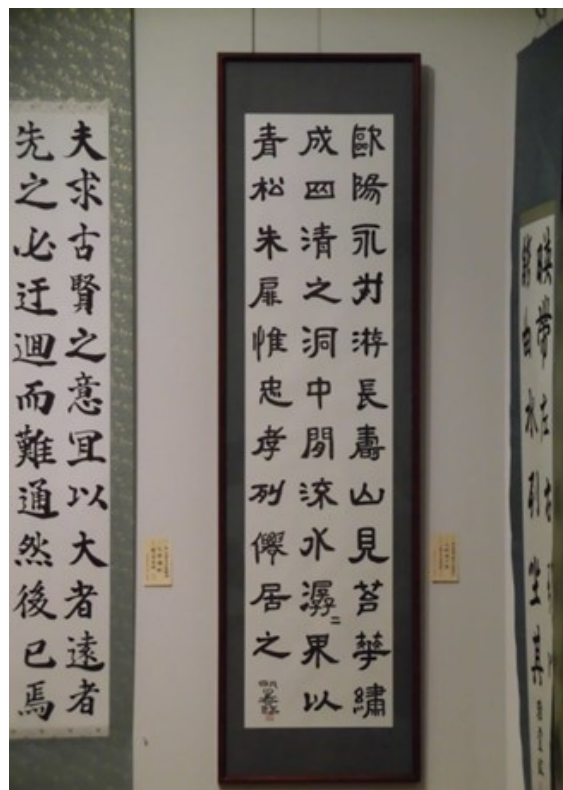 暎帶左右
觴曲水列坐其
歐陽永叔游長壽山見苔華繡
成四清之洞中閒流水潺〻果以
青松朱扉惟忠孝列僊居之
夫求古賢之意冝以大者遠者
先之必迂迴而難通然後已焉